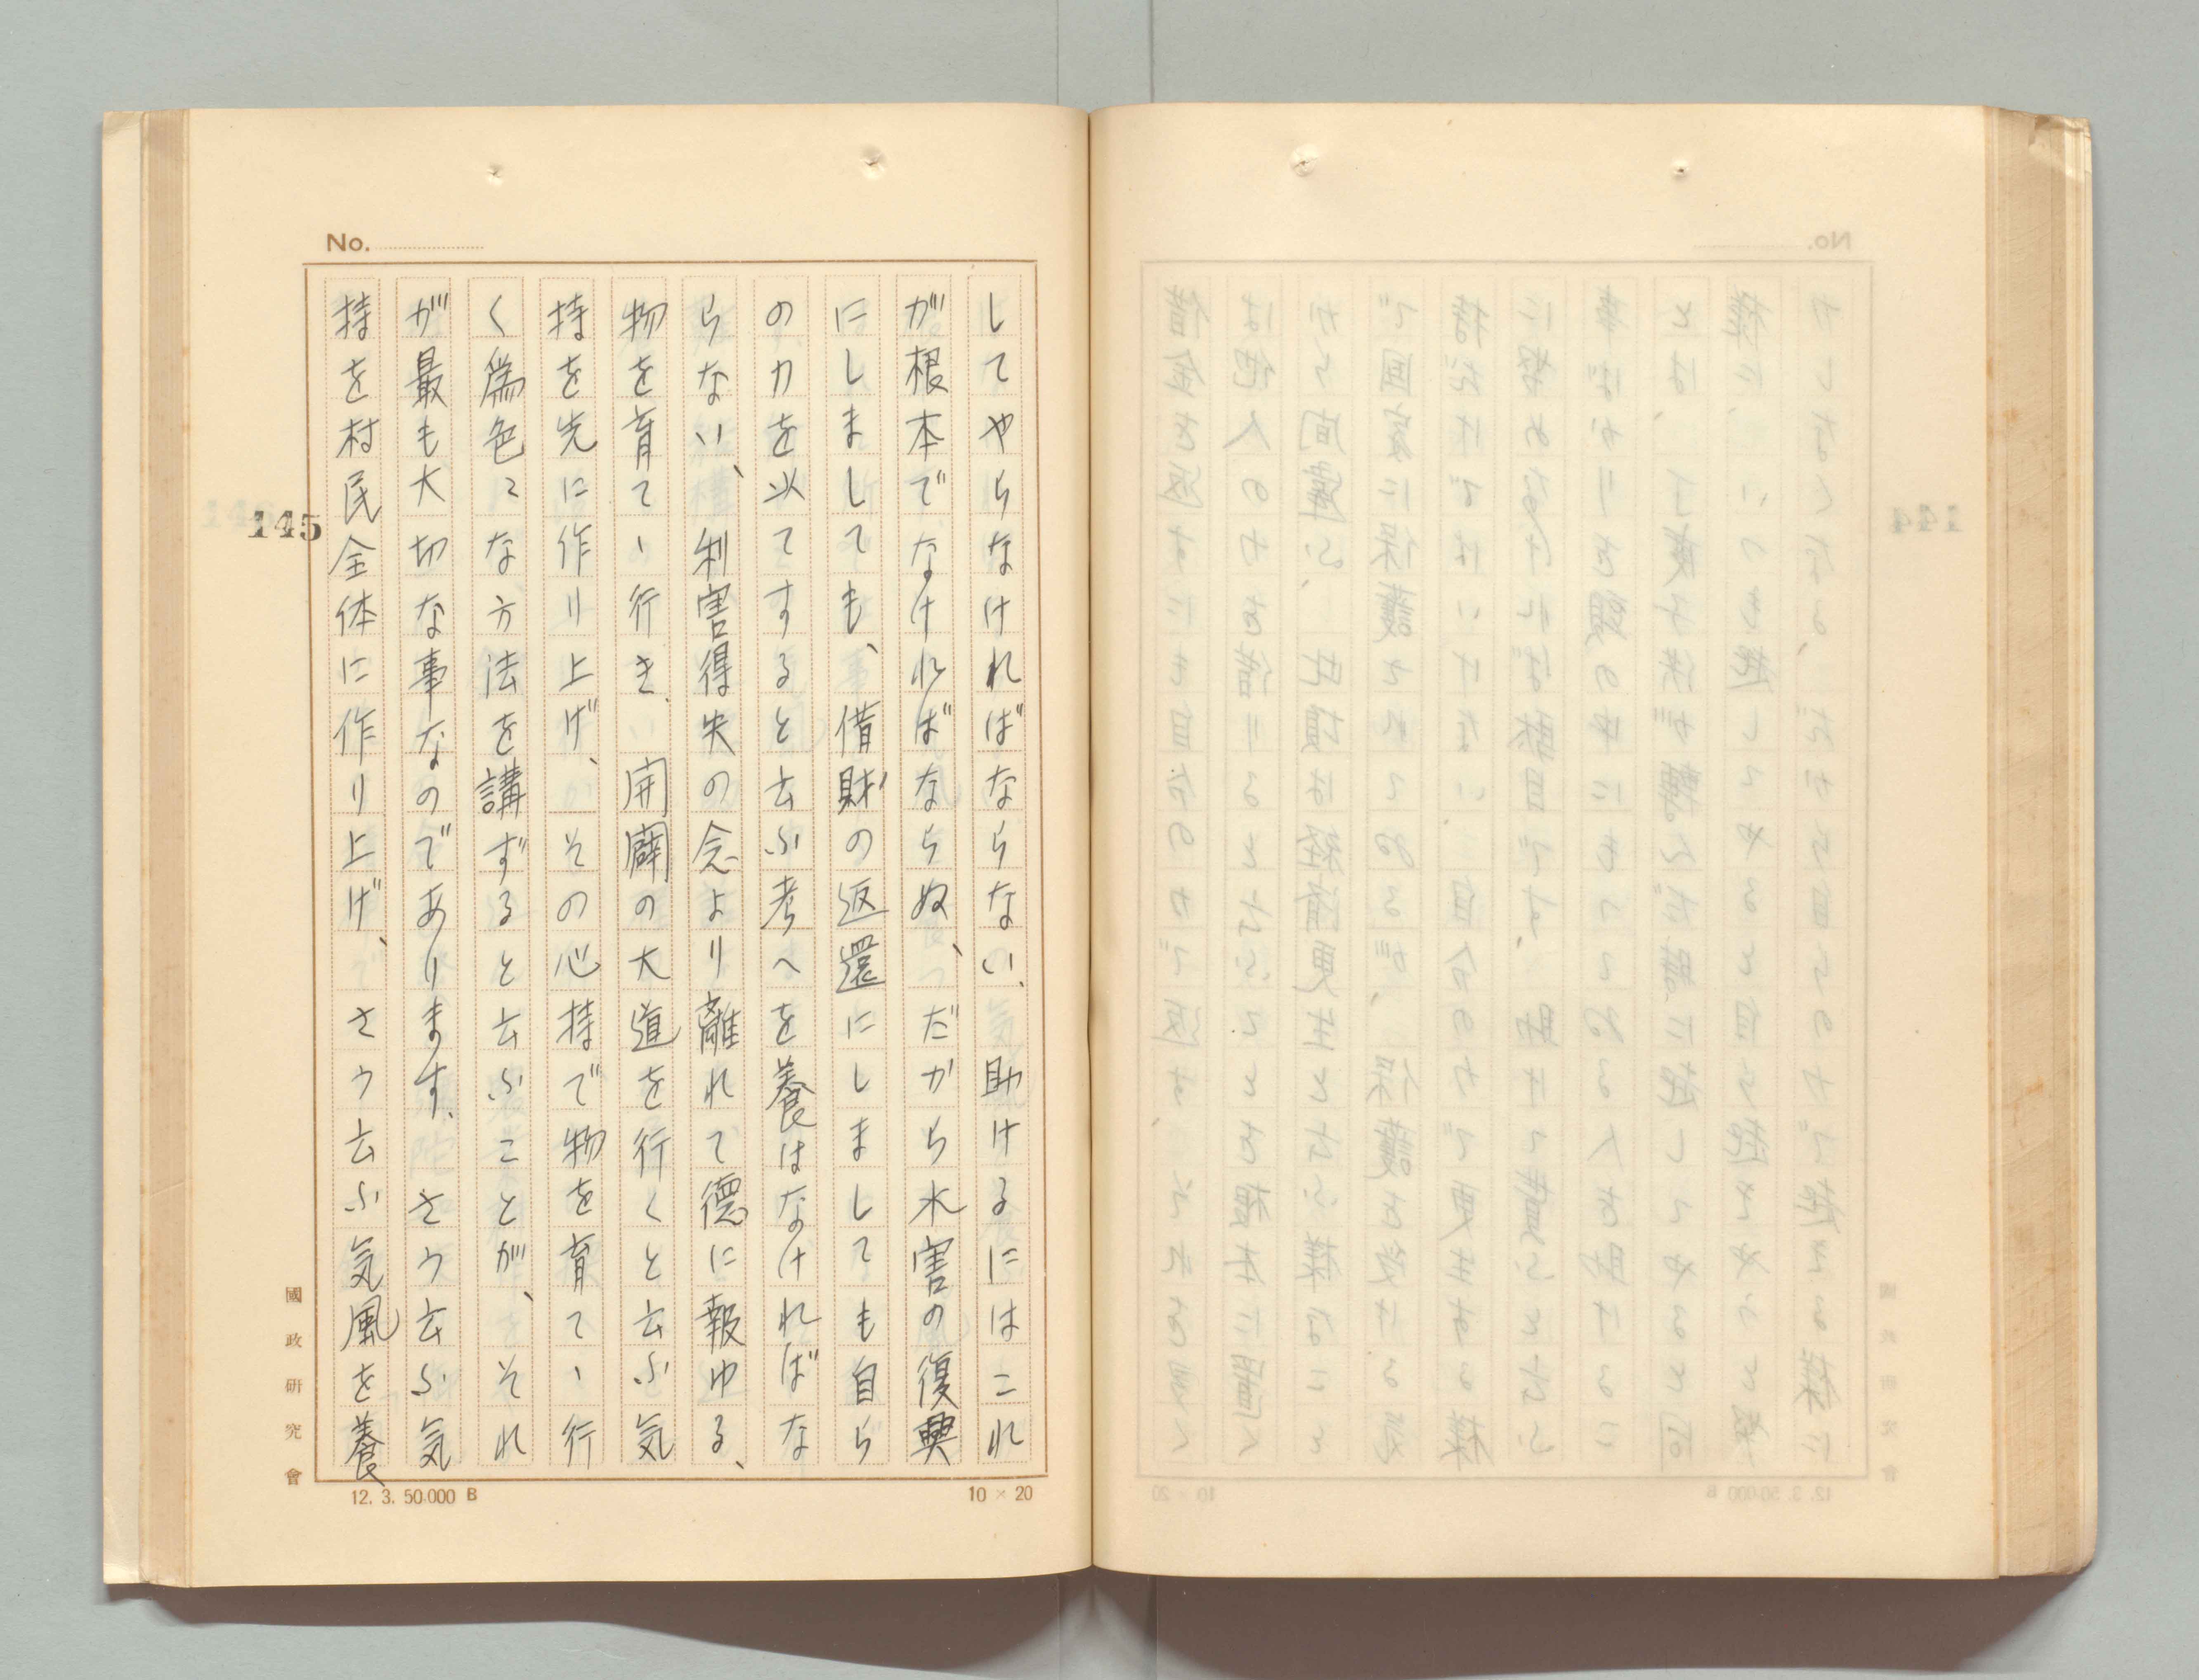 No.
してやらなければならない、助けるにはこれ
が根本でなければならぬ、だから水害の復興
にしましても、借財の返還にしましても自ら
の力を以てすると云ふ考へを養はなければな
らない、利害得失の念より離れて徳に報ゆる、
物を育てゝ行き、開闢の大道を行くと云ふ気
持を先に作り上げ、その心持で物を育てゝ行
く為色々な方法を講ずると云ふことが、それ
が最も大切な事なのであります、さう云ふ気
持を村民全体に作り上げ、さう云ふ気風を養
145
國政研究會
12. 3. 50.000 B
10 × 20